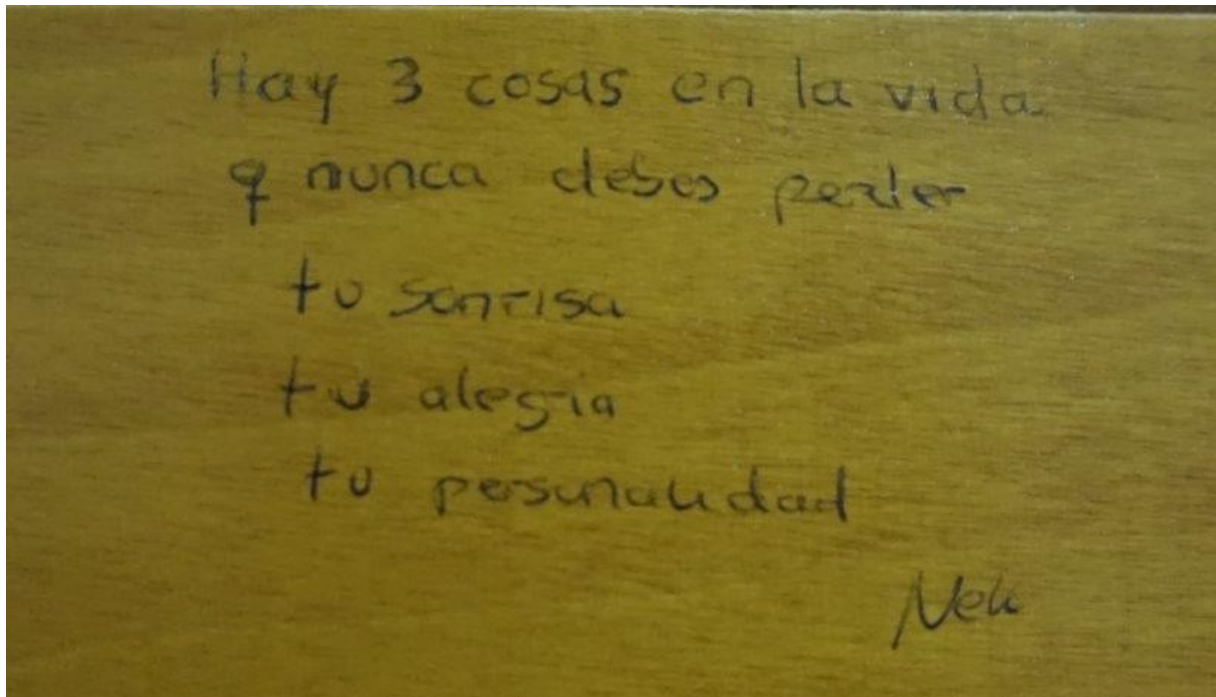 Hay 3 cosas en la vida
q nunca debes perder
tu sonrisa
tu alegria
tu personalidad